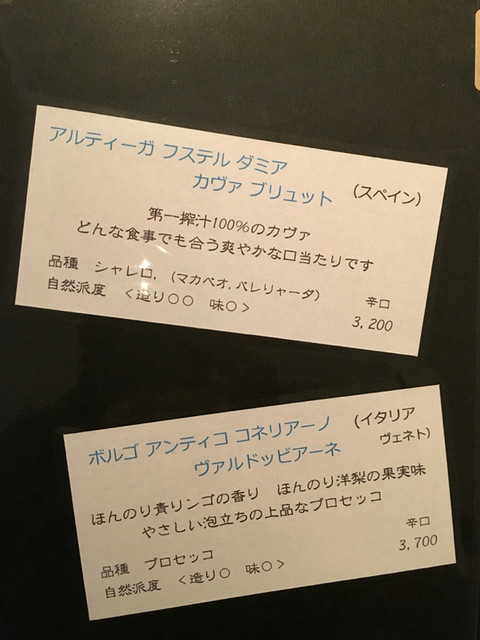 アルティーガ フステル ダミア
カヴァ ブリュット (スペイン)
第一搾汁100%のカヴァ
どんな食事でも合う爽やかな口当たりです
品種 シャレロ, (マカベオ, パレリャーダ)
辛口
自然派度 <造り○○ 味○>
3,200
ボルゴ アンティコ コネリアーノ (イタリア
ヴァルドッビアーネ ヴェネト)
ほんのり青リンゴの香り ほんのり洋梨の果実味
やさしい泡立ちの上品なプロセッコ
辛口
品種 プロセッコ
3,700
自然派度 <造り○ 味○>